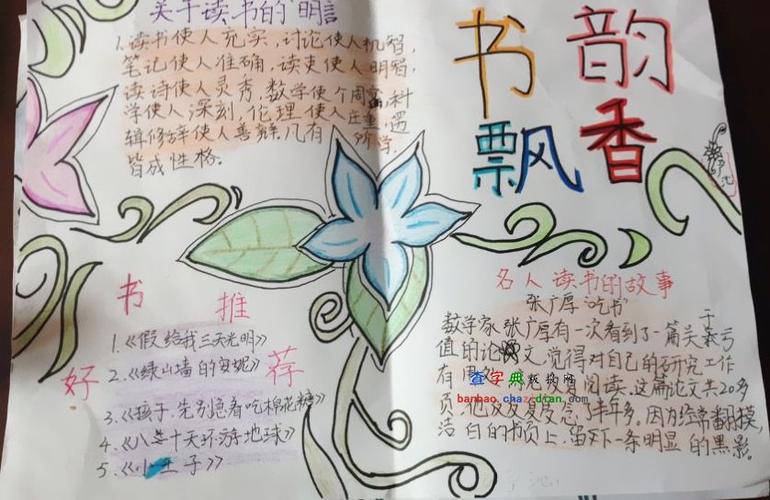 关于读书的名言
1.读书使人充实,讨论使人机智,
笔记使人准确,读史使人明智,
读诗使人灵秀,数学使人周密,科
学使人深刻,伦理使人庄重,逻
辑修辞使人善辩.凡有所学.
皆成性格.
书韵
飘香
好书推荐
1.《假如给我三天光明》
2.《绿山墙的安妮》
3.《孩子.先别急着吃棉花糖》
4.《八十天环游地球》
5.《小王子》
名人读书的故事
张广厚"吃书"
数学家张广厚有一次看到了一篇关于亏
值的论文,觉得对自己的研究工作
有 反复阅读.这篇论文共20多
页,他反反复复念了半年多.因为经常翻摸,
洁白的书页上,留下一条明显的黑影.
查字典板报网
banbao.chazidian.com